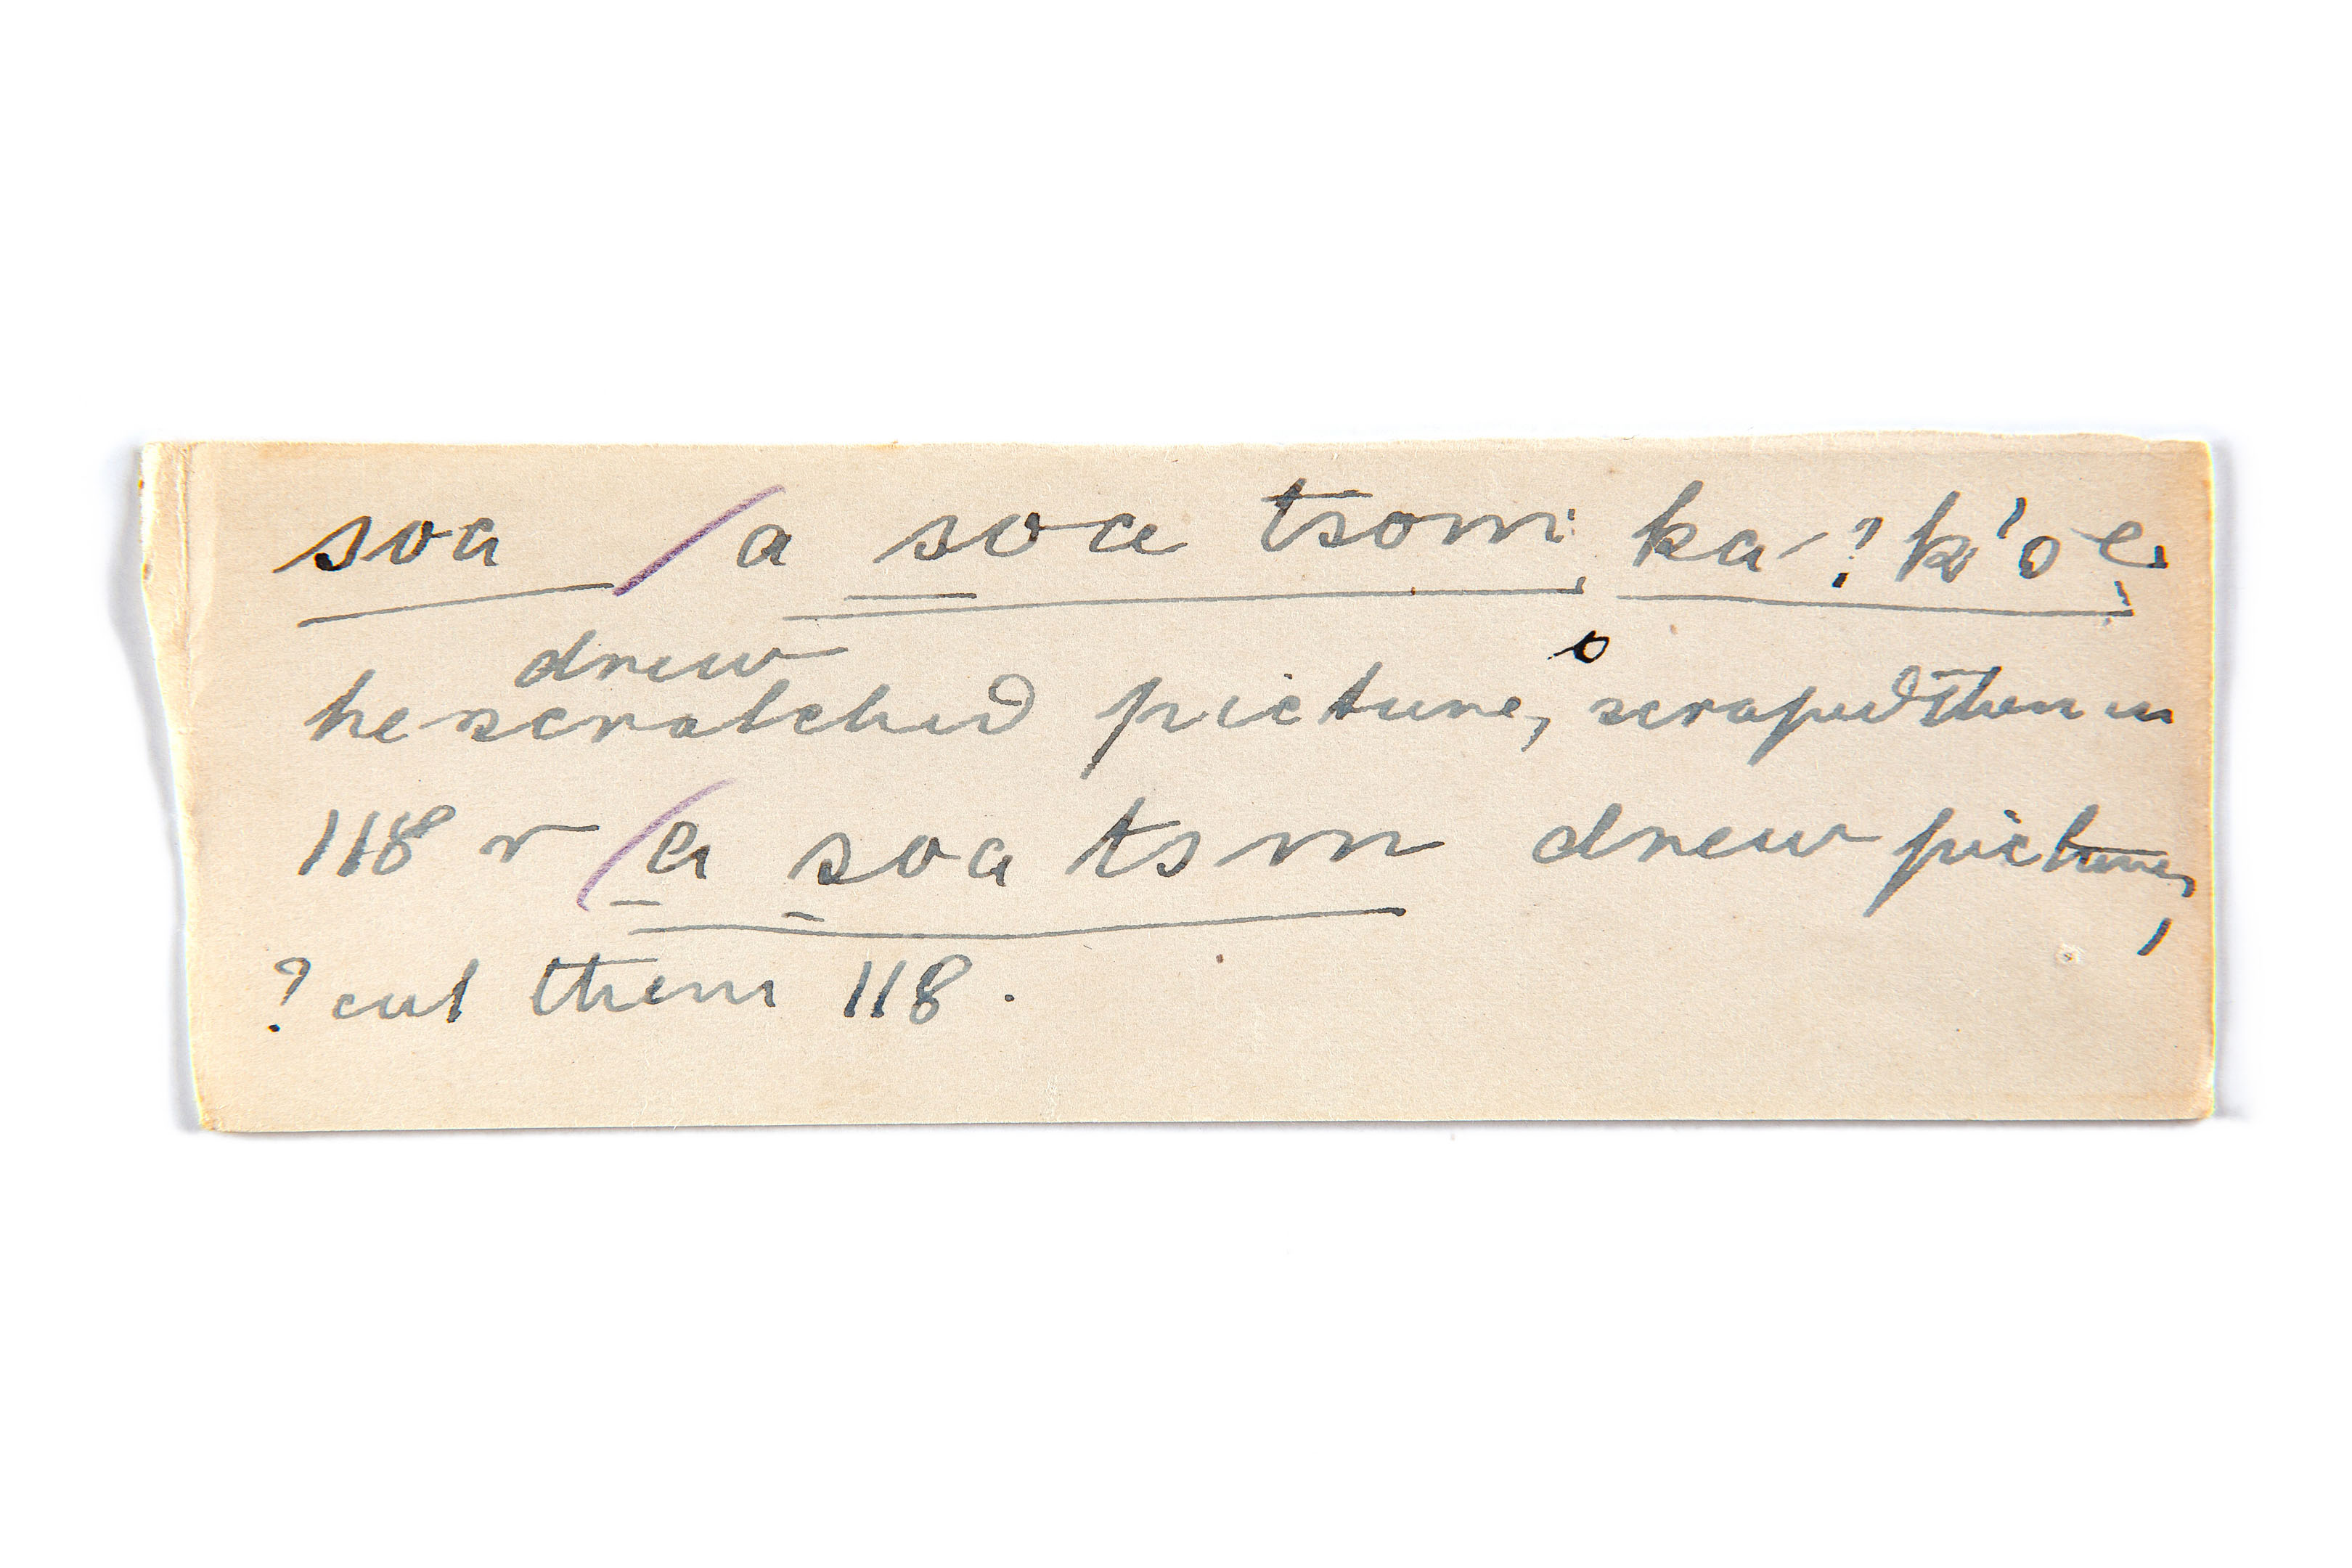 soa / a soa tsom: ka ? k'oe
drew
he scratched picture, scraped them in
118 r / a soa tsm drew picture,
? cut them 118.